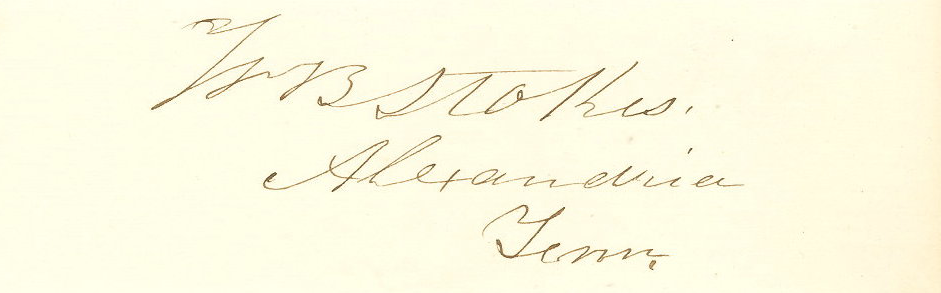 Wm B Stokes.
Alexandria
Tenn.